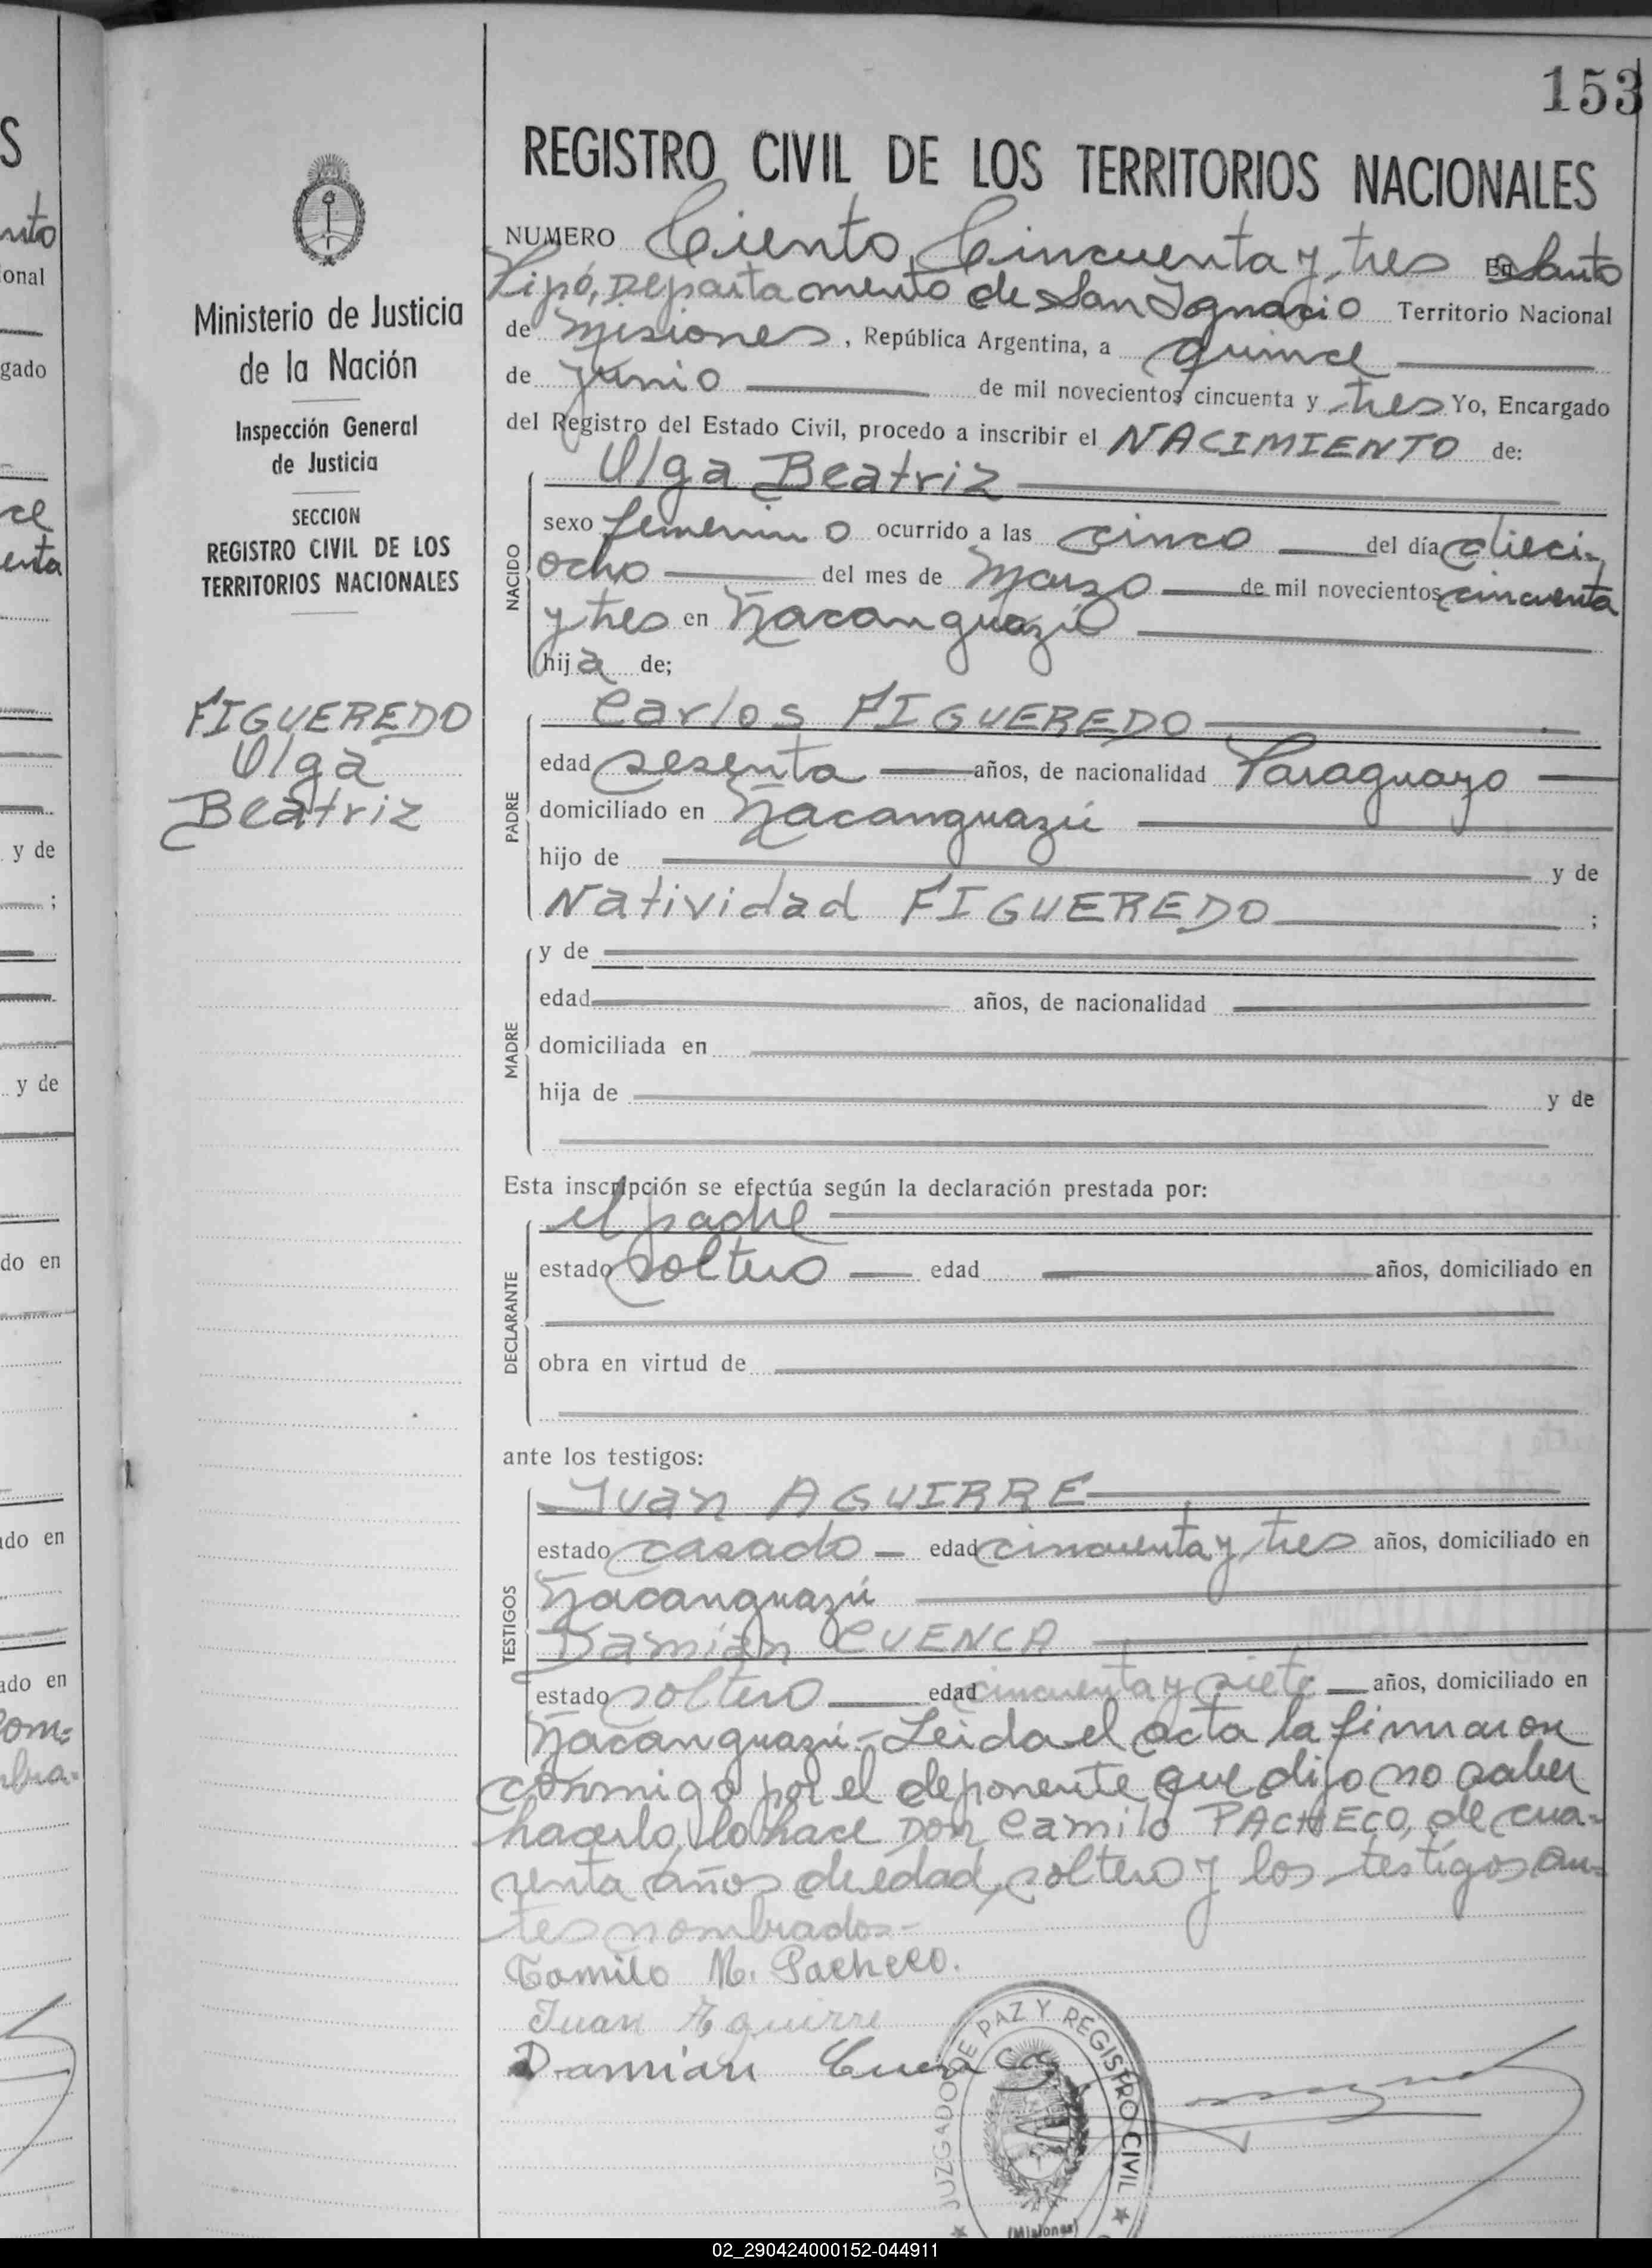 153
REGISTRO CIVIL DE LOS TERRITORIOS NACIONALES
NUMERO Ciento Cincuenta y tres En Santo
Pipó, Departamento de San Ignacio Territorio Nacional
de Misiones, República Argentina, a quince
de junio de mil novecientos cincuenta y tres Yo, Encargado
del Registro del Estado Civil, procedo a inscribir el NACIMIENTO de:
Ministerio de Justicia
de la Nación
Inspección General
de Justicia
SECCION
REGISTRO CIVIL DE LOS
TERRITORIOS NACIONALES
FIGUEREDO
Olga
Beatriz
NACIDO
Olga Beatriz
sexo femenino ocurrido a las cinco del día dieci-
ocho del mes de Marzo de mil novecientos cincuenta
y tres en Ñacanguazú
hija de;
PADRE
Carlos FIGUEREDO
edad sesenta años, de nacionalidad Paraguayo
domiciliado en Ñacanguazú
hijo de y de
Natividad FIGUEREDO ;
MADRE
y de
edad años, de nacionalidad
domiciliada en
hija de y de
Esta inscripción se efectúa según la declaración prestada por:
DECLARANTE
el padre
estado soltero edad años, domiciliado en
obra en virtud de
ante los testigos:
TESTIGOS
Juan AGUIRRE
estado casado - edad cincuenta y tres años, domiciliado en
Ñacanguazú
Damián CUENCA
estado soltero edad cincuenta y siete años, domiciliado en
Ñacanguazú.- Leida el acta la firmaron
conmigo por el deponente que dijo no saber
hacerlo, lo hace Don Camilo PACHECO, de cua-
renta años de edad, soltero y los testigos an-
tes nombrados.-
Camilo M. Pacheco.
Juan Aguirre
Damian Cuenca
JUZGADO DE PAZ Y REGISTRO CIVIL
(Misiones)
02_290424000152-044911